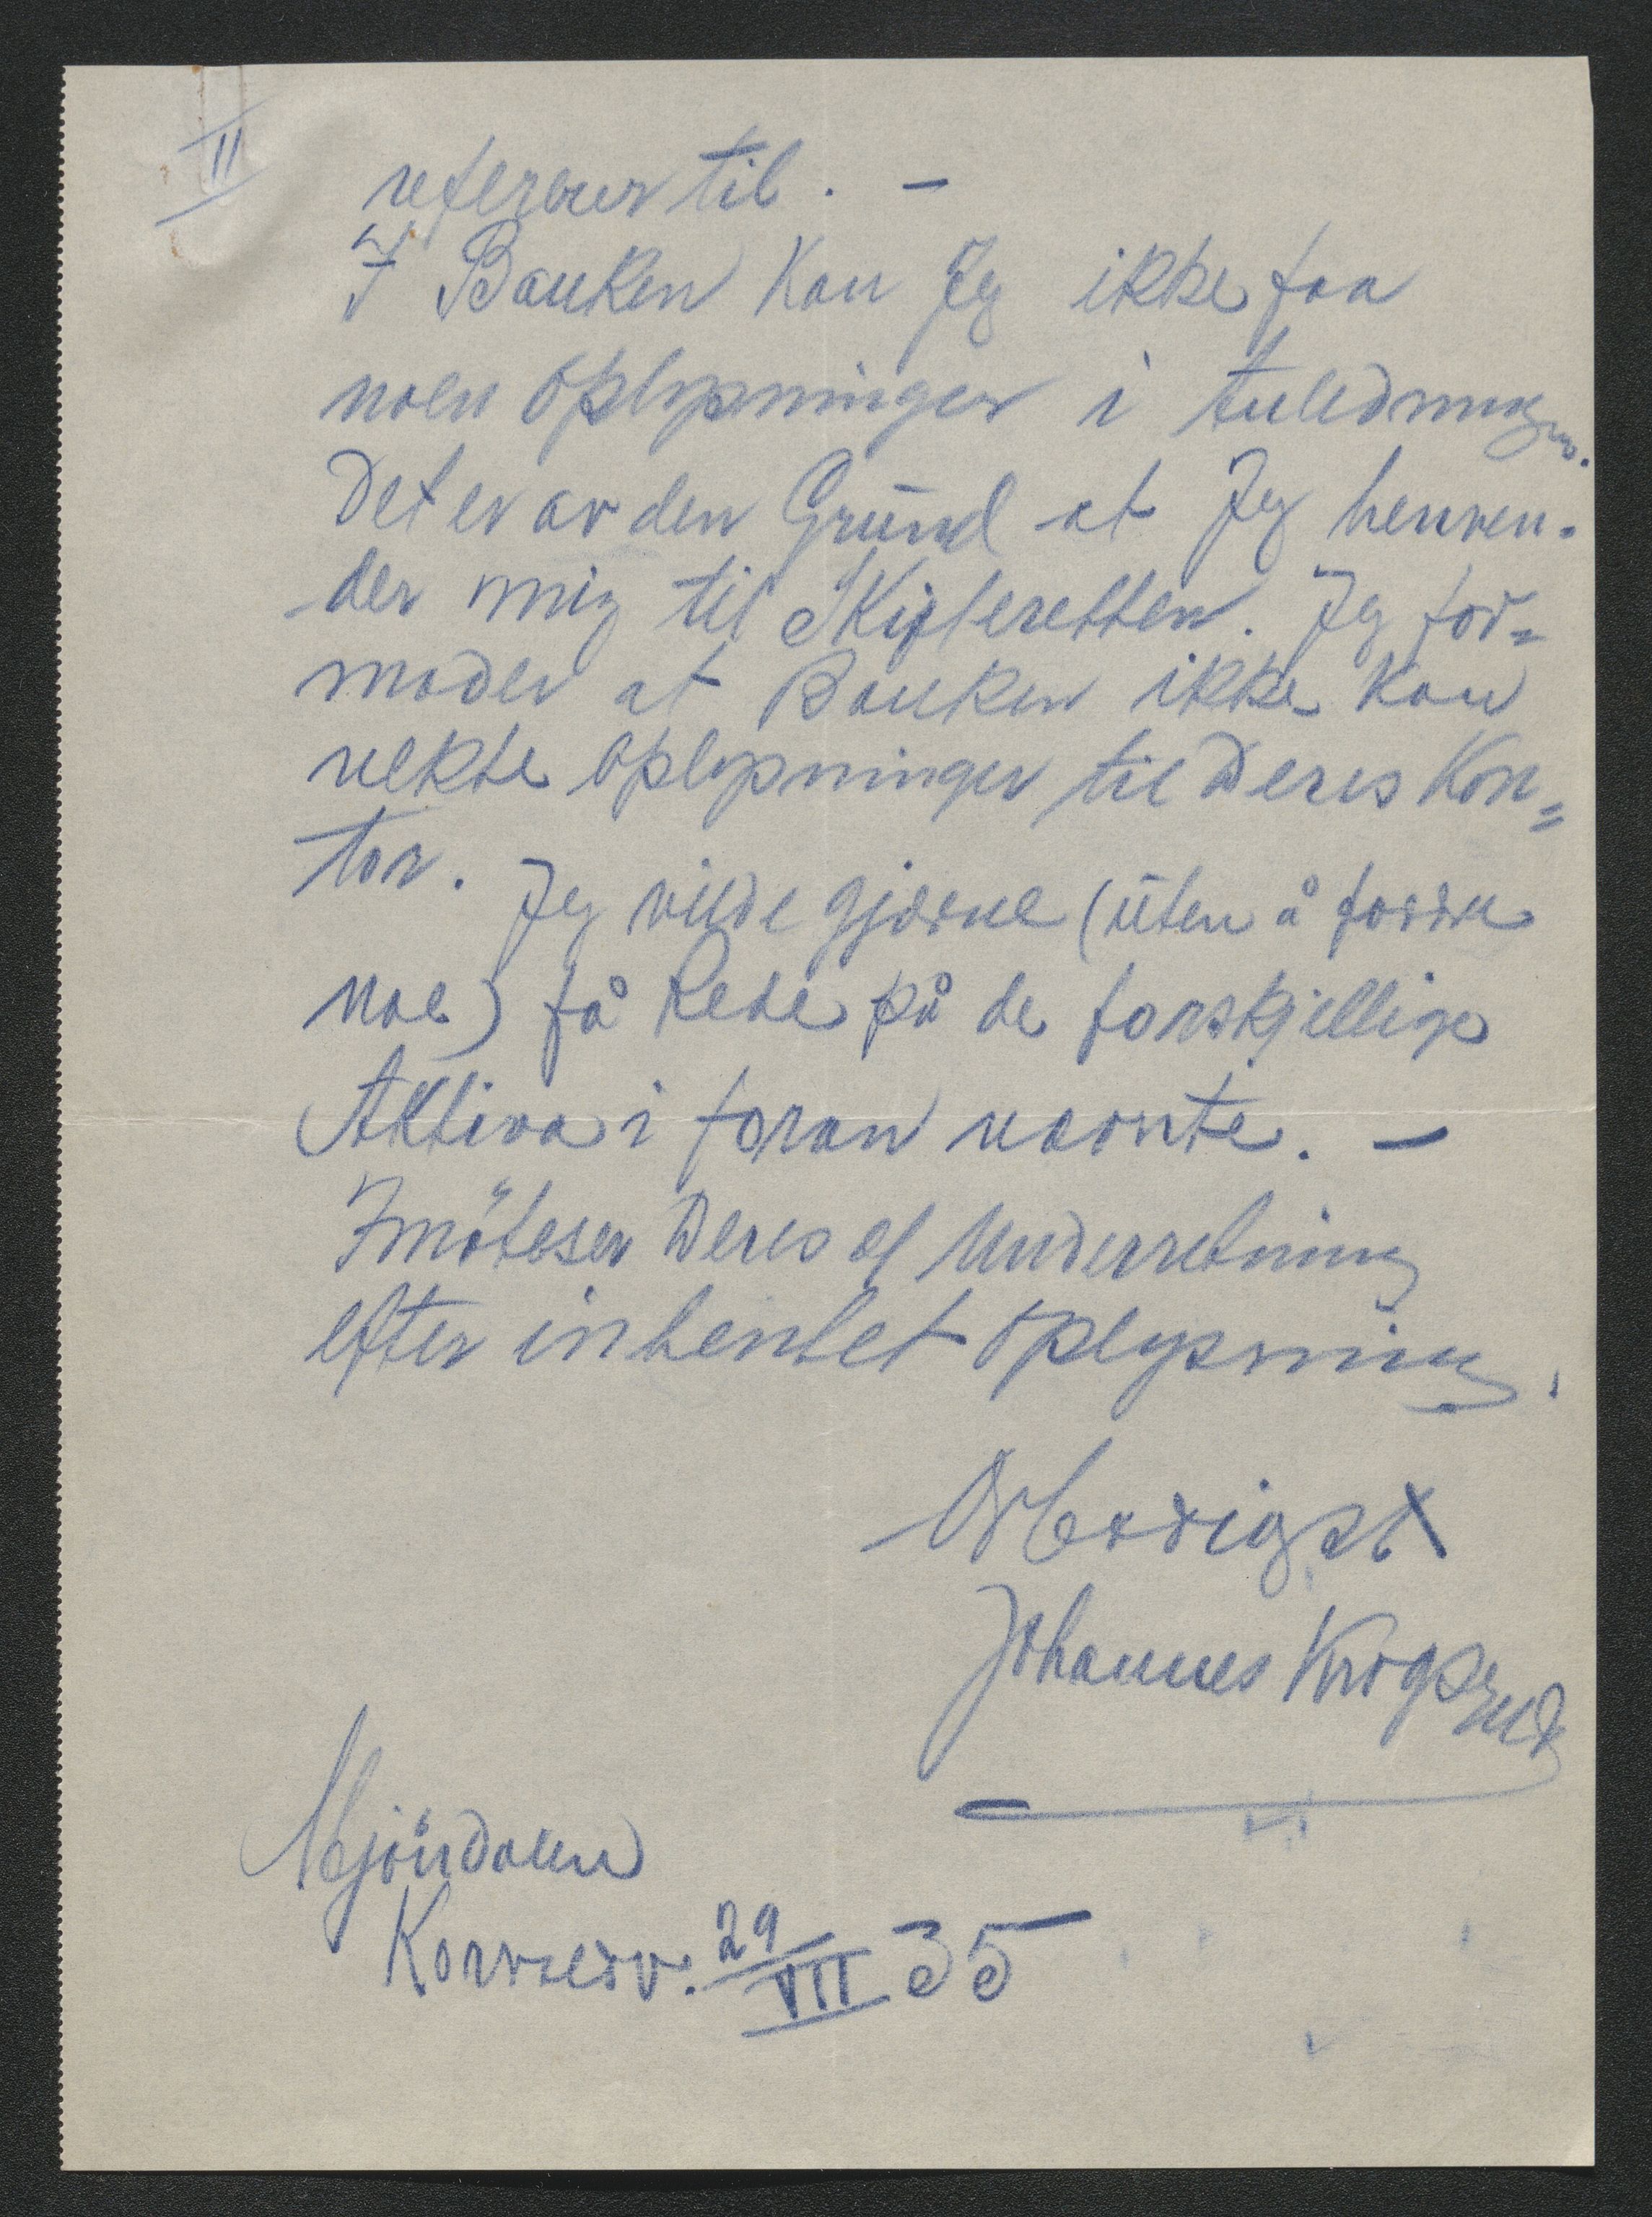 II
refererer til. —
I Banken Kan Jeg ikke faa
noen oplysninger i Anledningen.
Det er av den Grund at Jeg henven-
der mig til Skifteretten. Jeg for=
moder at Banken ikke kan
nekte oplysninger til Deres Kon=
tor.
Jeg vilde gjærne (uten å
noe) få Rede på de forskjellige
Aktiva i foran nævnte. —
Imøteser Deres Underretning
efter inhentet oplysning.
Ærbødigst
Johannes Krogsrud
Mjöndalen
29/VII 35